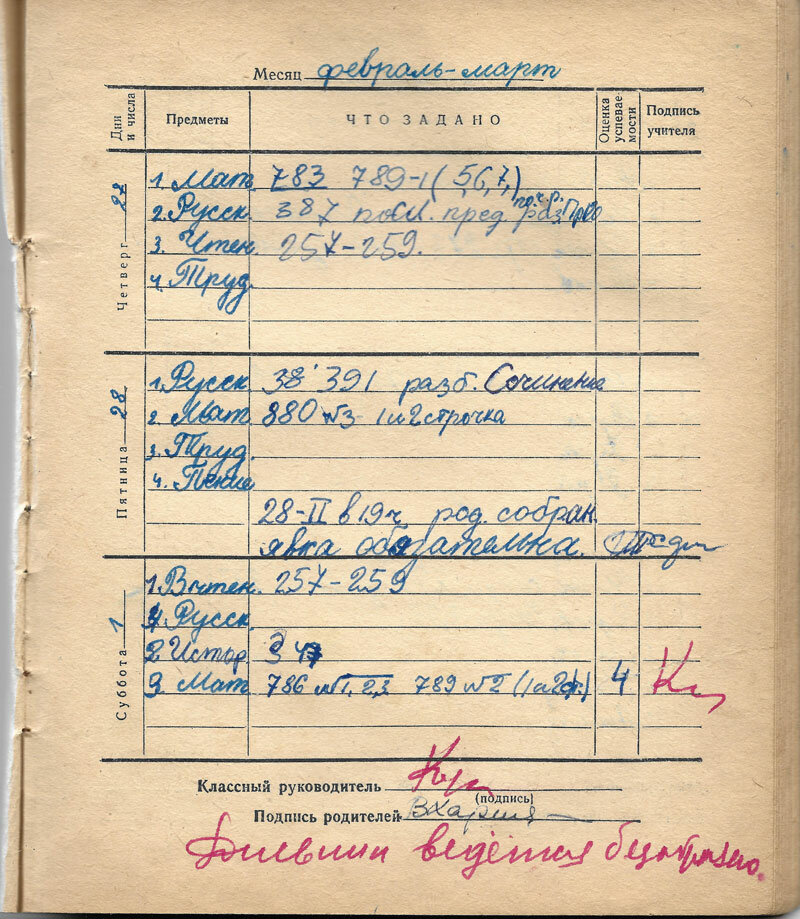 Месяц февраль-март
Дни и числа Предметы ЧТО ЗАДАНО Оценка успевае-мости Подпись учителя
Четверг 27
1. Мат. 783 789-1 (5,6,7,)
2. Русск. 387 пред. раз.
3. Чтен. 257-259.
4. Труд.
Пятница 28
1. Русск 38 391 разб. Сочинение
2. Мат. 880 №3 1 и 2 строчка
3. Труд.
4. Пение
28-II в 19ч род. собран.
явка обязательна.
Суббота 1
1. Вчтен. 257-259
Русск.
2 Истор
3. Мат. 786 №1, 2,3 789 №2 (1 и 2 ) 4
Классный руководитель
(подпись)
Подпись родителей
Дневник ведётся безобразно.